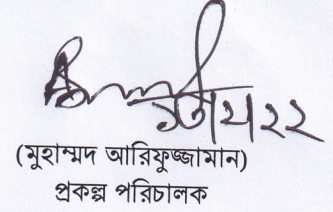 (মুহাম্মদ আরিফুজ্জামান)
প্রকল্প পরিচালক